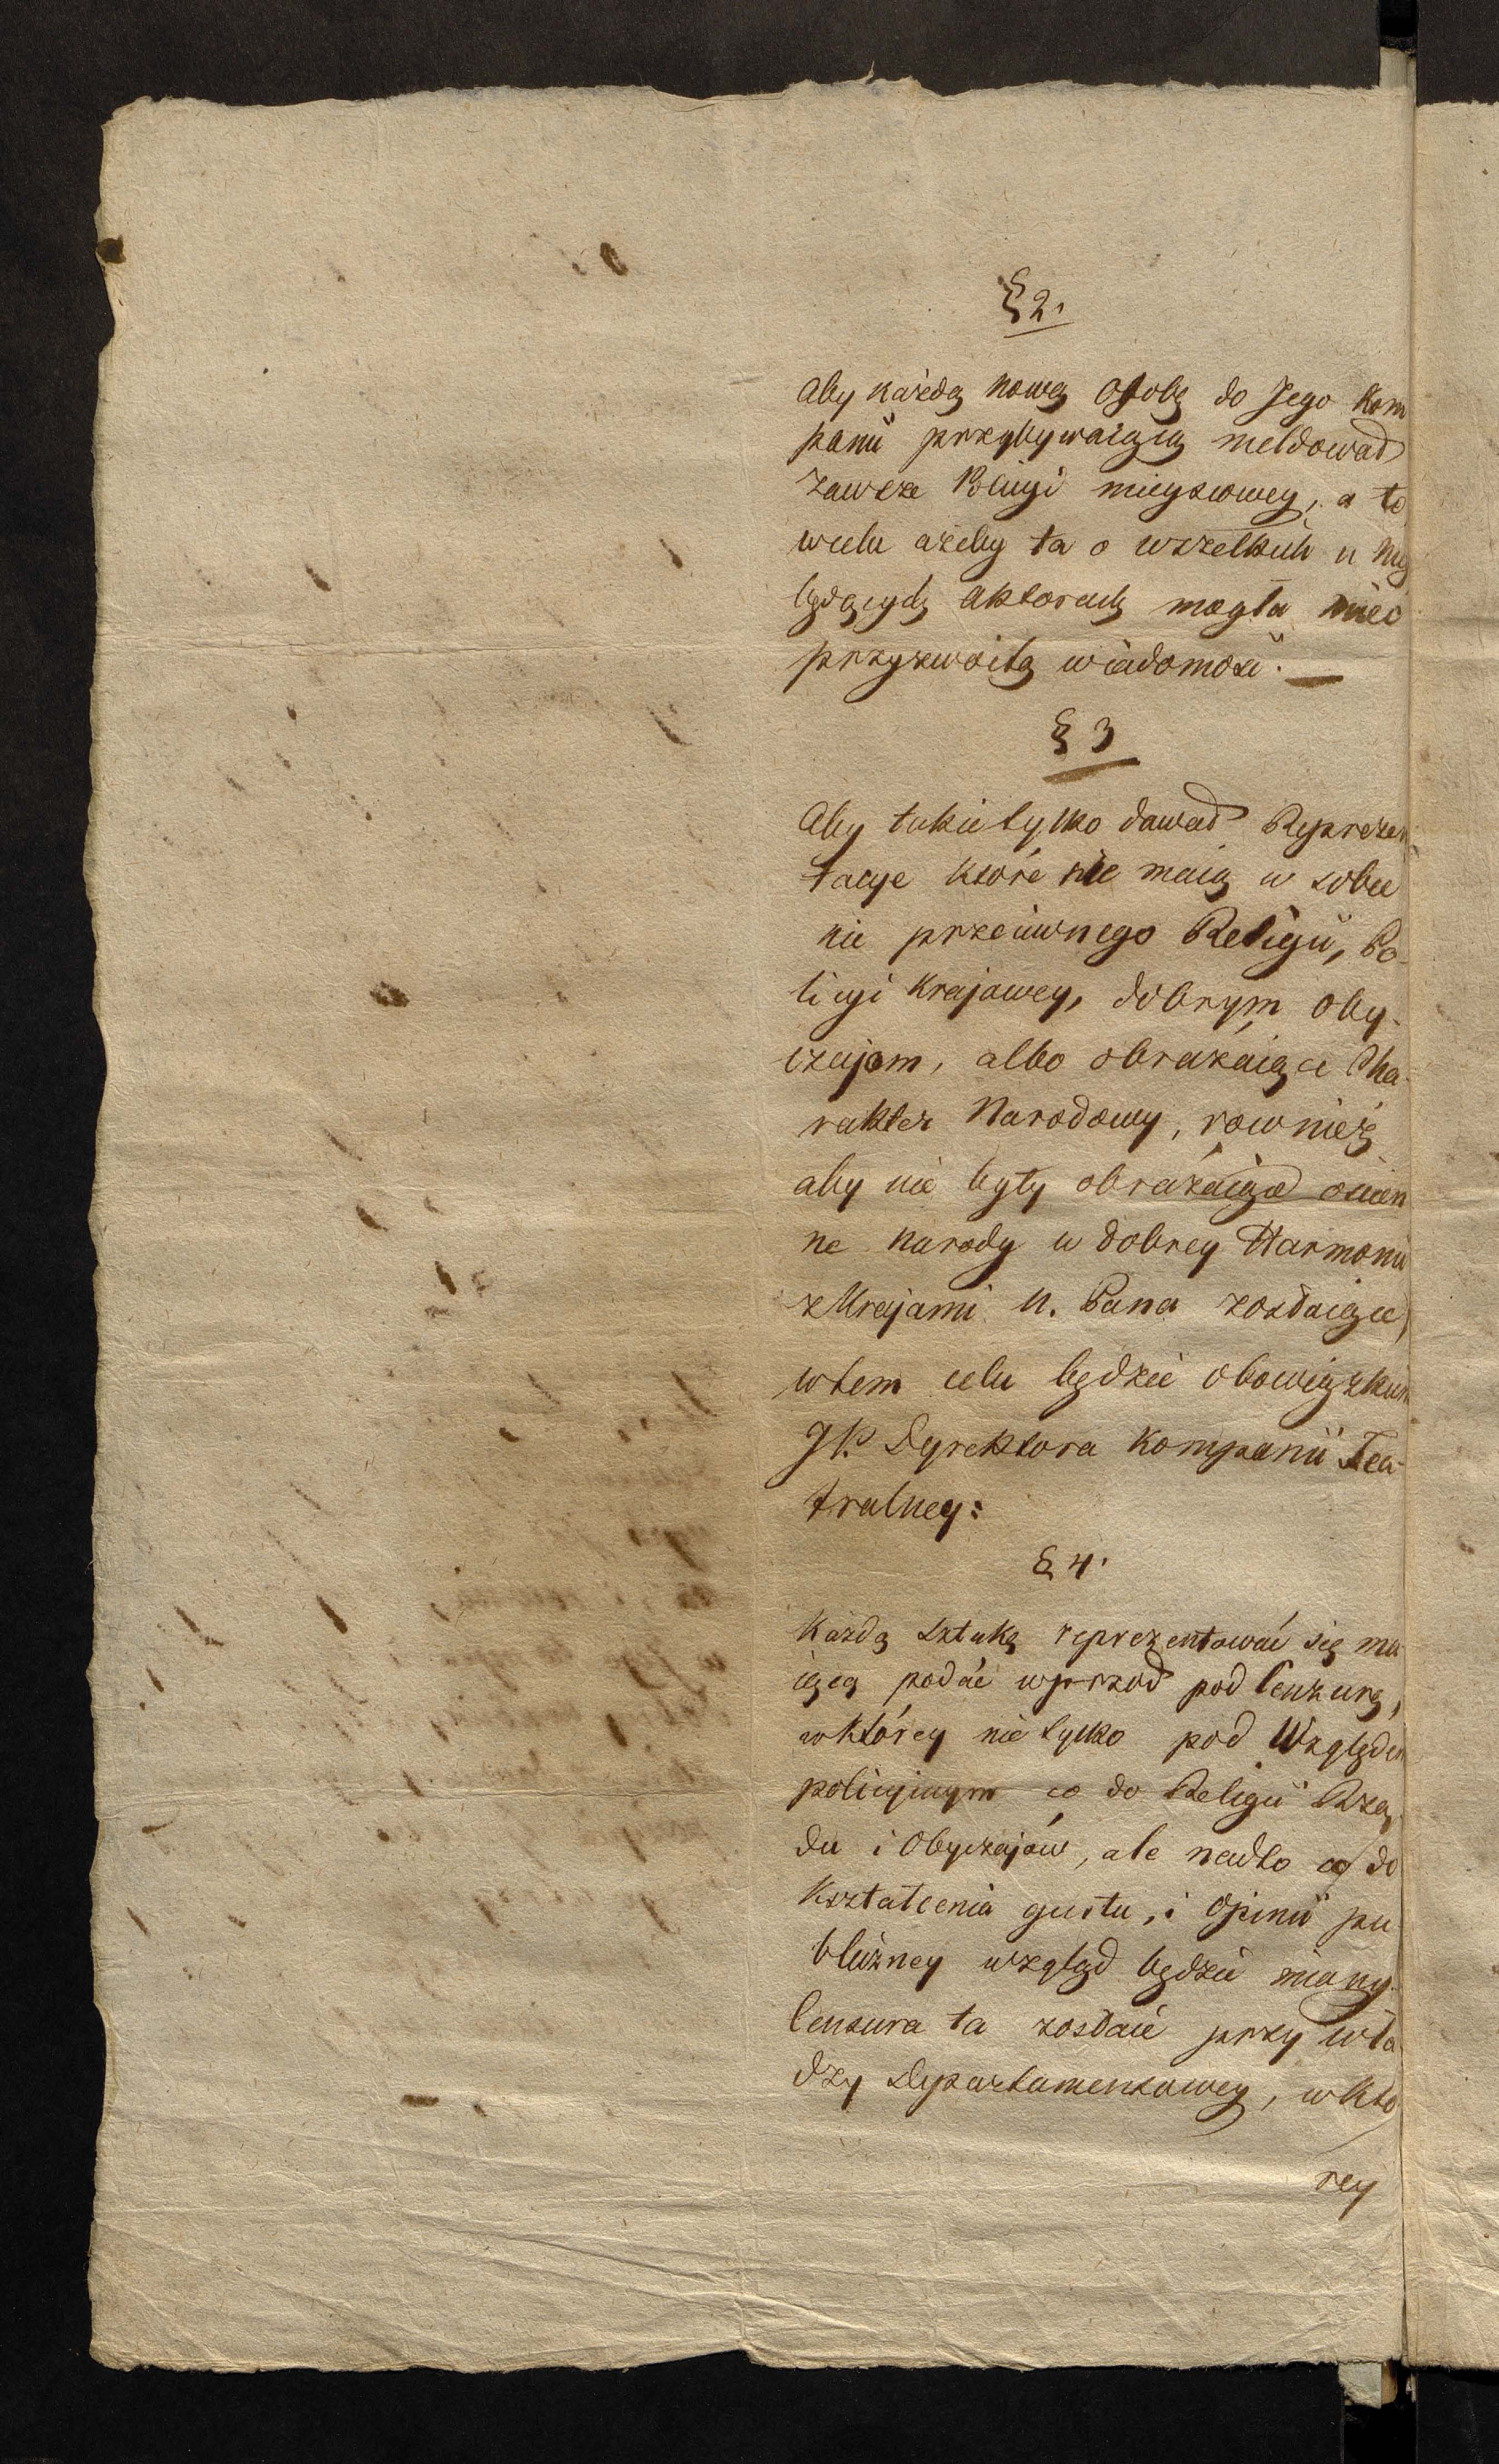 § 2.
Aby każdą nową Osobę do Jego Kom
panii przybywaiącą meldował
zawsze Policyi mieyscowey, a to
wcelu ażeby ta o wszelkich u niey
będących Aktorach mogła mieć
przyzwoitą wiadomość. —
§ 3
Aby takie tylko dawał Reprezen
tacye które nie maią w sobie
nic przeciwnego Religii, Po-
licyi Krajowey, dobrym oby-
czajom, albo obrażaiące Cha-
rakter Narodowy, rownież
aby nie były obrażaiące ościen
ne narody w dobrey Harmonii
z Krajami N. Pana zostaiące,
wtem celu będzie obowiązkiem
JP. Dyrektora Kompanii Tea-
tralney:
§ 4.
Każdą sztukę reprezentować się ma
iącą podać wprzod pod Cenzurę,
wktórey nie tylko pod Względem
policyinym co do Religii Rzą
du i Obyczajów, ale nadto co do
Kształcenia gustu, i Opinii pu
bliczney wzgląd będzie miany.
Censura ta zostaie przy wła
dzy Departamentowey, w któ
rey